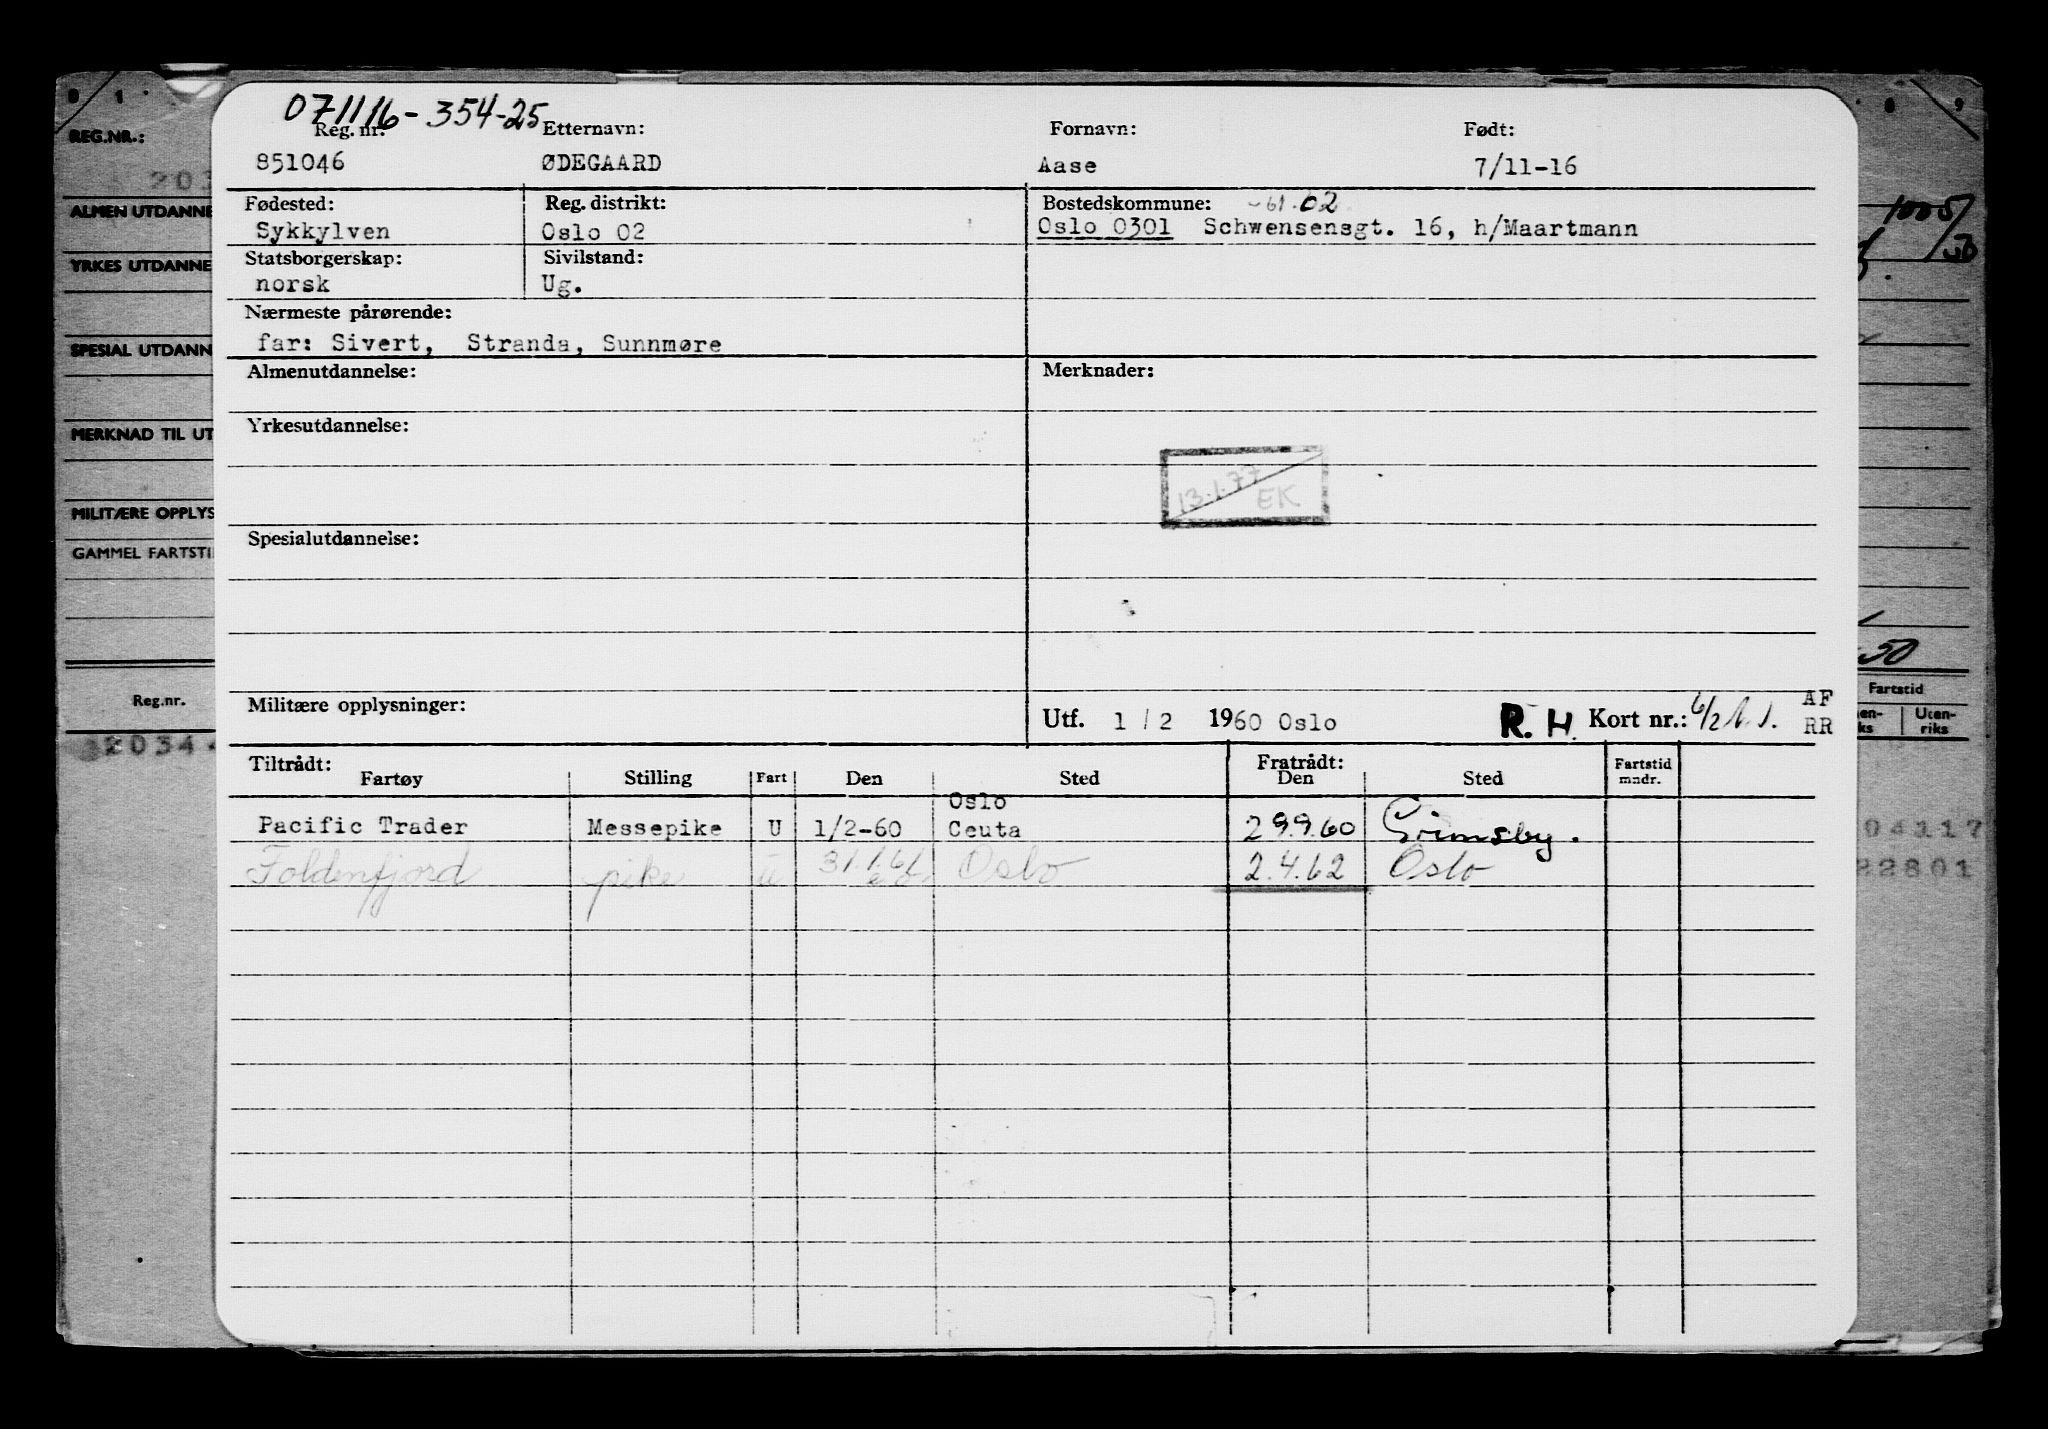 071116-354-25
Reg. nr. Etternavn: Fornavn: Født:
851046 ØDEGAARD Aase 7/11-16
Fødested: Reg. distrikt: Bostedskommune: -61.02
Sykkylven Oslo 02 Oslo 0301 Schwensensgt. 16, h/Maartmann
Statsborgerskap: Sivilstand:
norsk Ug.
Nærmeste pårørende:
far: Sivert, Stranda, Sunnmøre
Almenutdannelse: Merknader:
Yrkesutdannelse:
13.1.77
EK
Spesialutdannelse:
Militære opplysninger: Utf. 1/2 1960 Oslo R.H. Kort nr.: AF
RR
Tiltrådt: Fratrådt: Fartstid
Fartøy Stilling Fart Den Sted Den Sted mndr.
Oslo
Pacific Trader Messepike U 1/2-60 Ceuta 29.9.60 Grimsby.
Foldenfjord pike U 31.1.61 Oslo 2.4.62 Oslo
0 1
REG.NR.:
203
ALMEN UTDANNE
YRKES UTDANNE
SPESIAL UTDANN
MERKNAD TIL UT
MILITÆRE OPPLYS
GAMMEL FARTSTI
Reg.nr.
2034
8 9
1005/
50
50
Fartstid
en- Uten-
ks riks
04117
22801